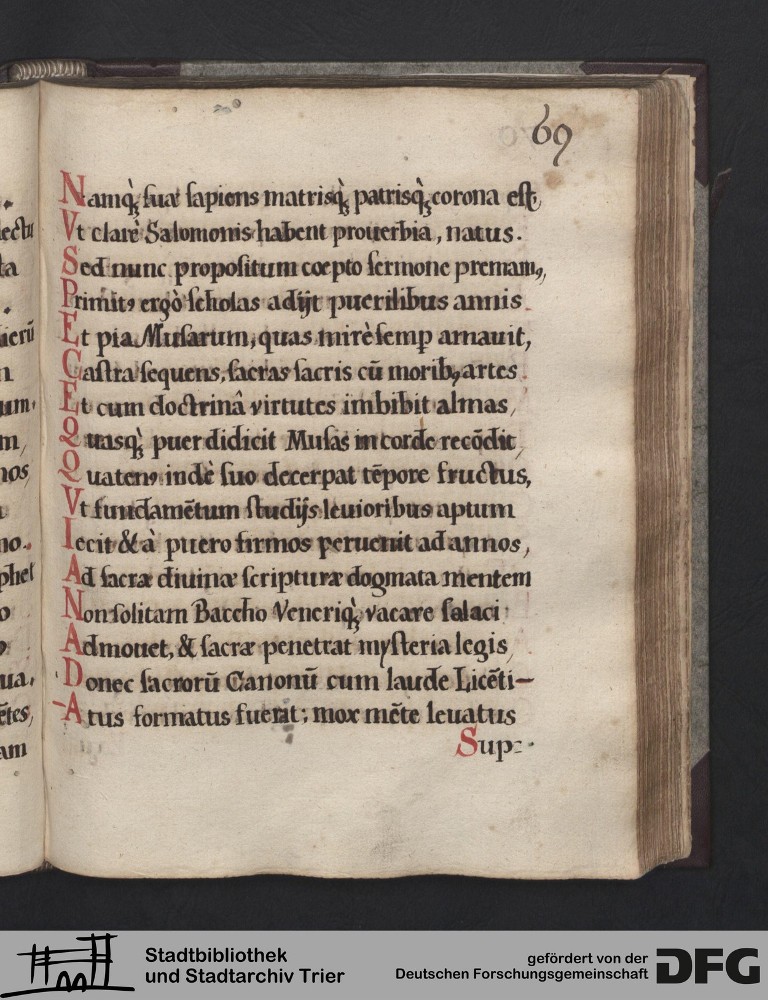 69
Namq́ʒ suæ sapiens matrisq́ʒ patrisq́ʒ corona est,
Vt clarè Salomonis habent prouerbia, natus.
Sed nunc propositum cœpto sermone premam,
Primitꝰ ergò scholas adijt puerilibus annis.
Et pia Musarum, quas mirè semp amauit,
Castra sequens, sacras sacris cū moribꝰ artes.
Et cum doctrinâ virtutes imbibit almas,
Quasq́ʒ puer didicit Musas in corde recōdit,
Quatenꝰ indè suo decerpat tēpore fructus,
Vt fundamētum studijs leuioribus aptum
Iecit & à puero firmos peruenit ad annos,
Ad sacræ diuinæ scripturæ dogmata mentem
Non solitam Baccho Veneriq́ʒ vacare salaci
Admouet, & sacræ penetrat mysteria legis,
Donec sacrorū Canonū cum laude Licēti-
-Atus formatus fuerat: mox mēte leuatus
Sup=
ectu
ta
ierū
n
um.
m,
nos,
no.
phet
o
ua.
ētes,
am
Stadtbibliothek
und Stadtarchiv Trier
gefördert von der
Deutschen Forschungsgemeinschaft
DFG